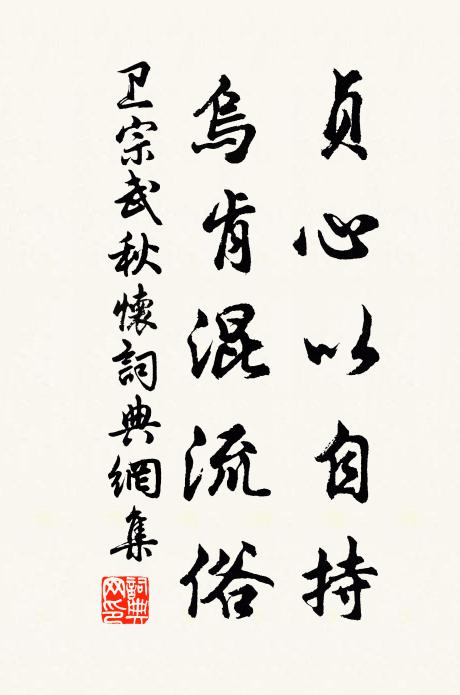 貞心以自持
烏肯混流俗
卫宗武秋懷詞典網集
詞典網印